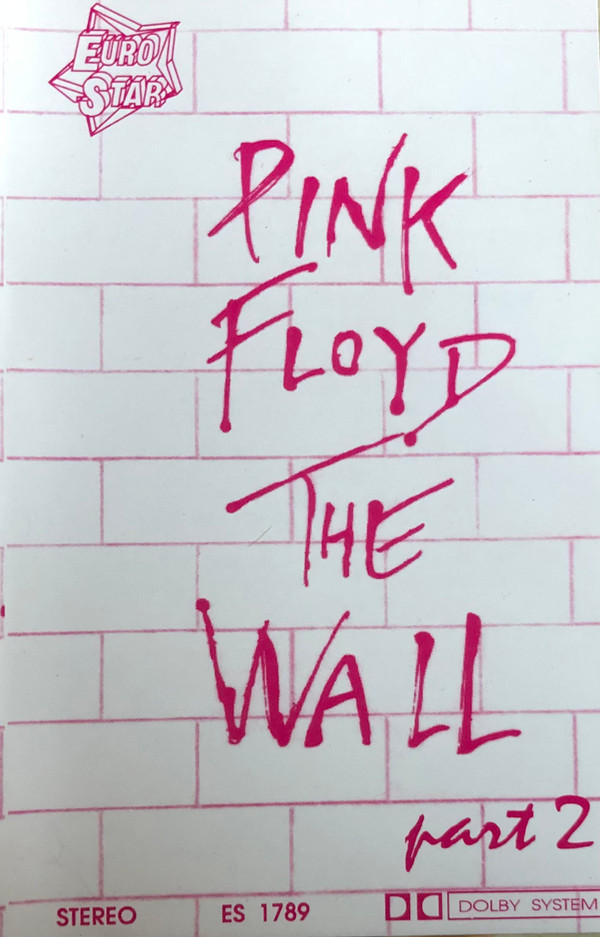 EURO
STAR
PINK
FLOYD
THE
WALL
part 2
STEREO ES 1789 DOLBY SYSTEM